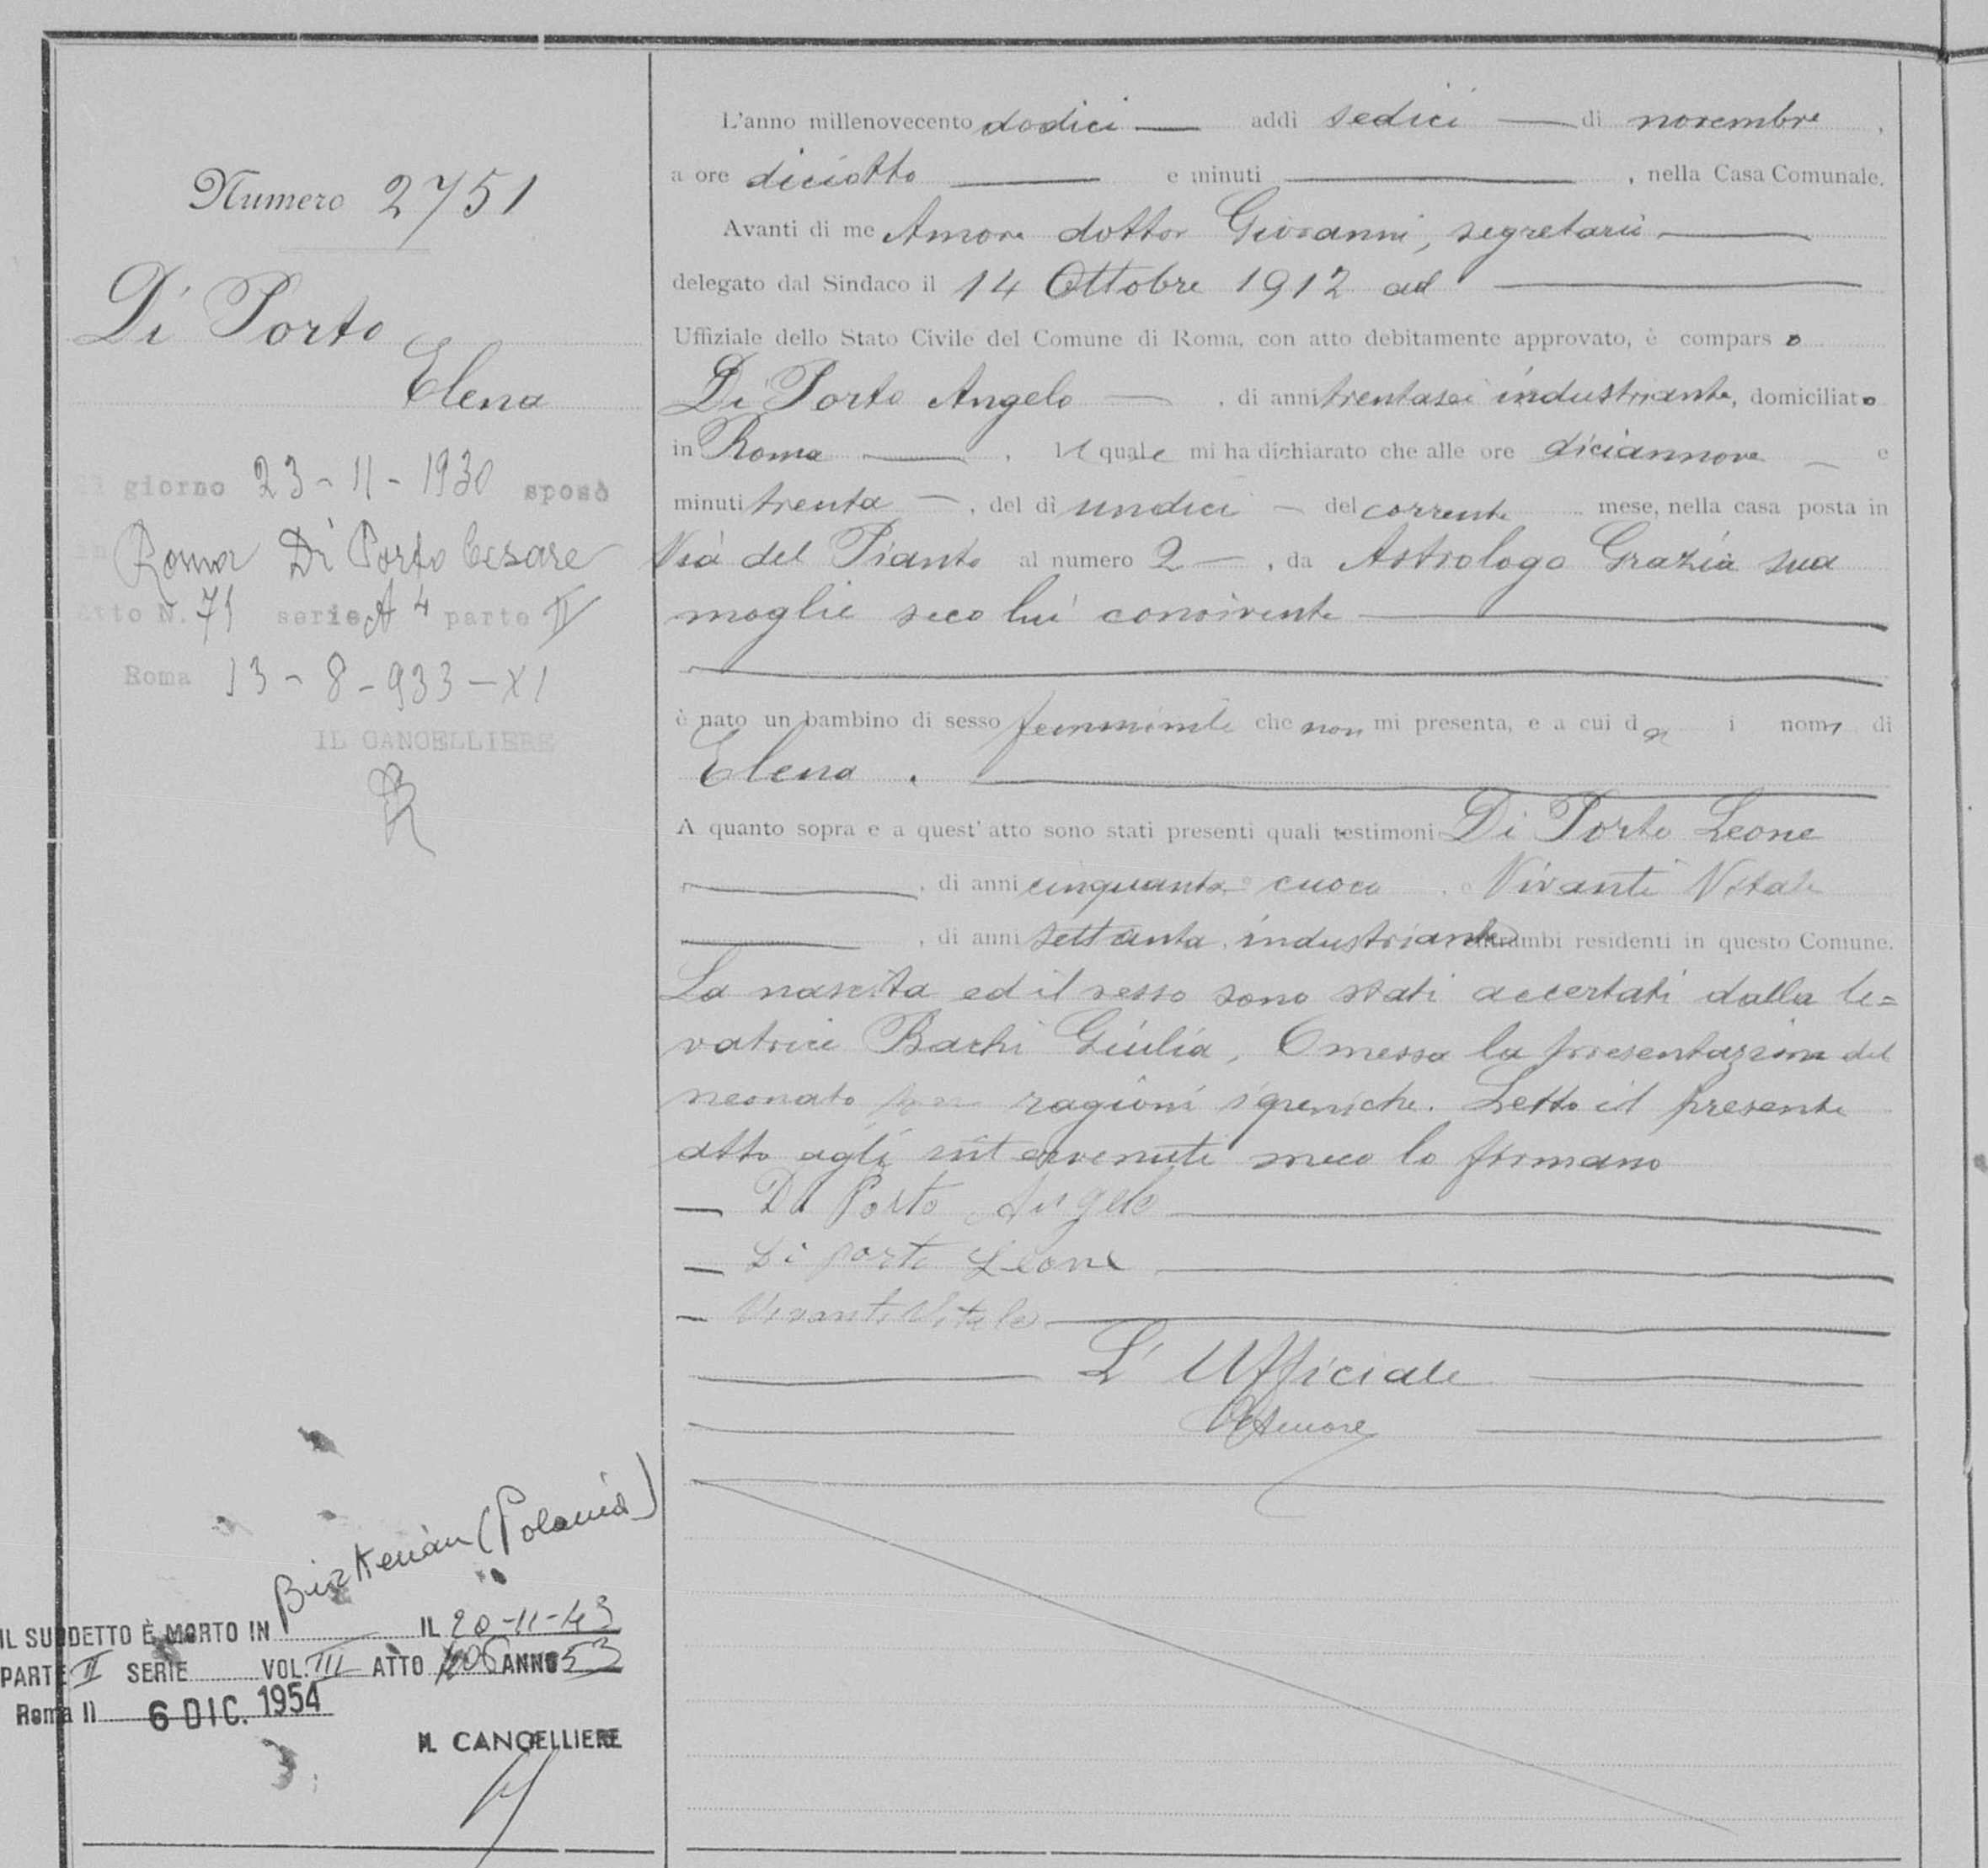 Numero 2751
Di Porto
Elena
Il giorno 23-11-1930 sposò
in Roma Di Porto Cesare
Atto N. 71 serie A 4 parte II
Roma 13-8-933-XI
IL CANCELLIERE
L'anno millenovecento dodici — addì sedici — di novembre,
a ore diciotto — e minuti —, nella Casa Comunale.
Avanti di me Amore dottor Giovanni, segretario —
delegato dal Sindaco il 14 Ottobre 1912 ad —
Uffiziale dello Stato Civile del Comune di Roma, con atto debitamente approvato, è comparso
Di Porto Angelo —, di anni trentasei industriante, domiciliato
in Roma —, il quale mi ha dichiarato che alle ore diciannove — e
minuti trenta —, del dì undici — del corrente mese, nella casa posta in
Via del Pianto al numero 2 —, da Astrologo Grazia sua
moglie seco lui convivente —
è nato un bambino di sesso femminile che non mi presenta, e a cui dà i nomi di
Elena. —
A quanto sopra e a quest'atto sono stati presenti quali testimoni Di Porto Leone
—, di anni cinquanta cuoco, e Vivanti Vitale
—, di anni settanta, industriante entrambi residenti in questo Comune.
La nascita ed il sesso sono stati accertati dalla le=
vatrice Bachi Giulia, Omessa la presentazione del
neonato per ragioni igieniche. Letto il presente
atto agli intervenuti meco lo firmano
— Di Porto Angelo —
— Di porto Leone —
— Vivanti Vitale —
L'Ufficiale
Amore
Birkenau (Polonia)
IL SUDDETTO È MORTO IN IL 20-11-43
PARTE II SERIE VOL. III ATTO 406 ANNO 53
Roma lì 6 DIC. 1954
IL CANCELLIERE